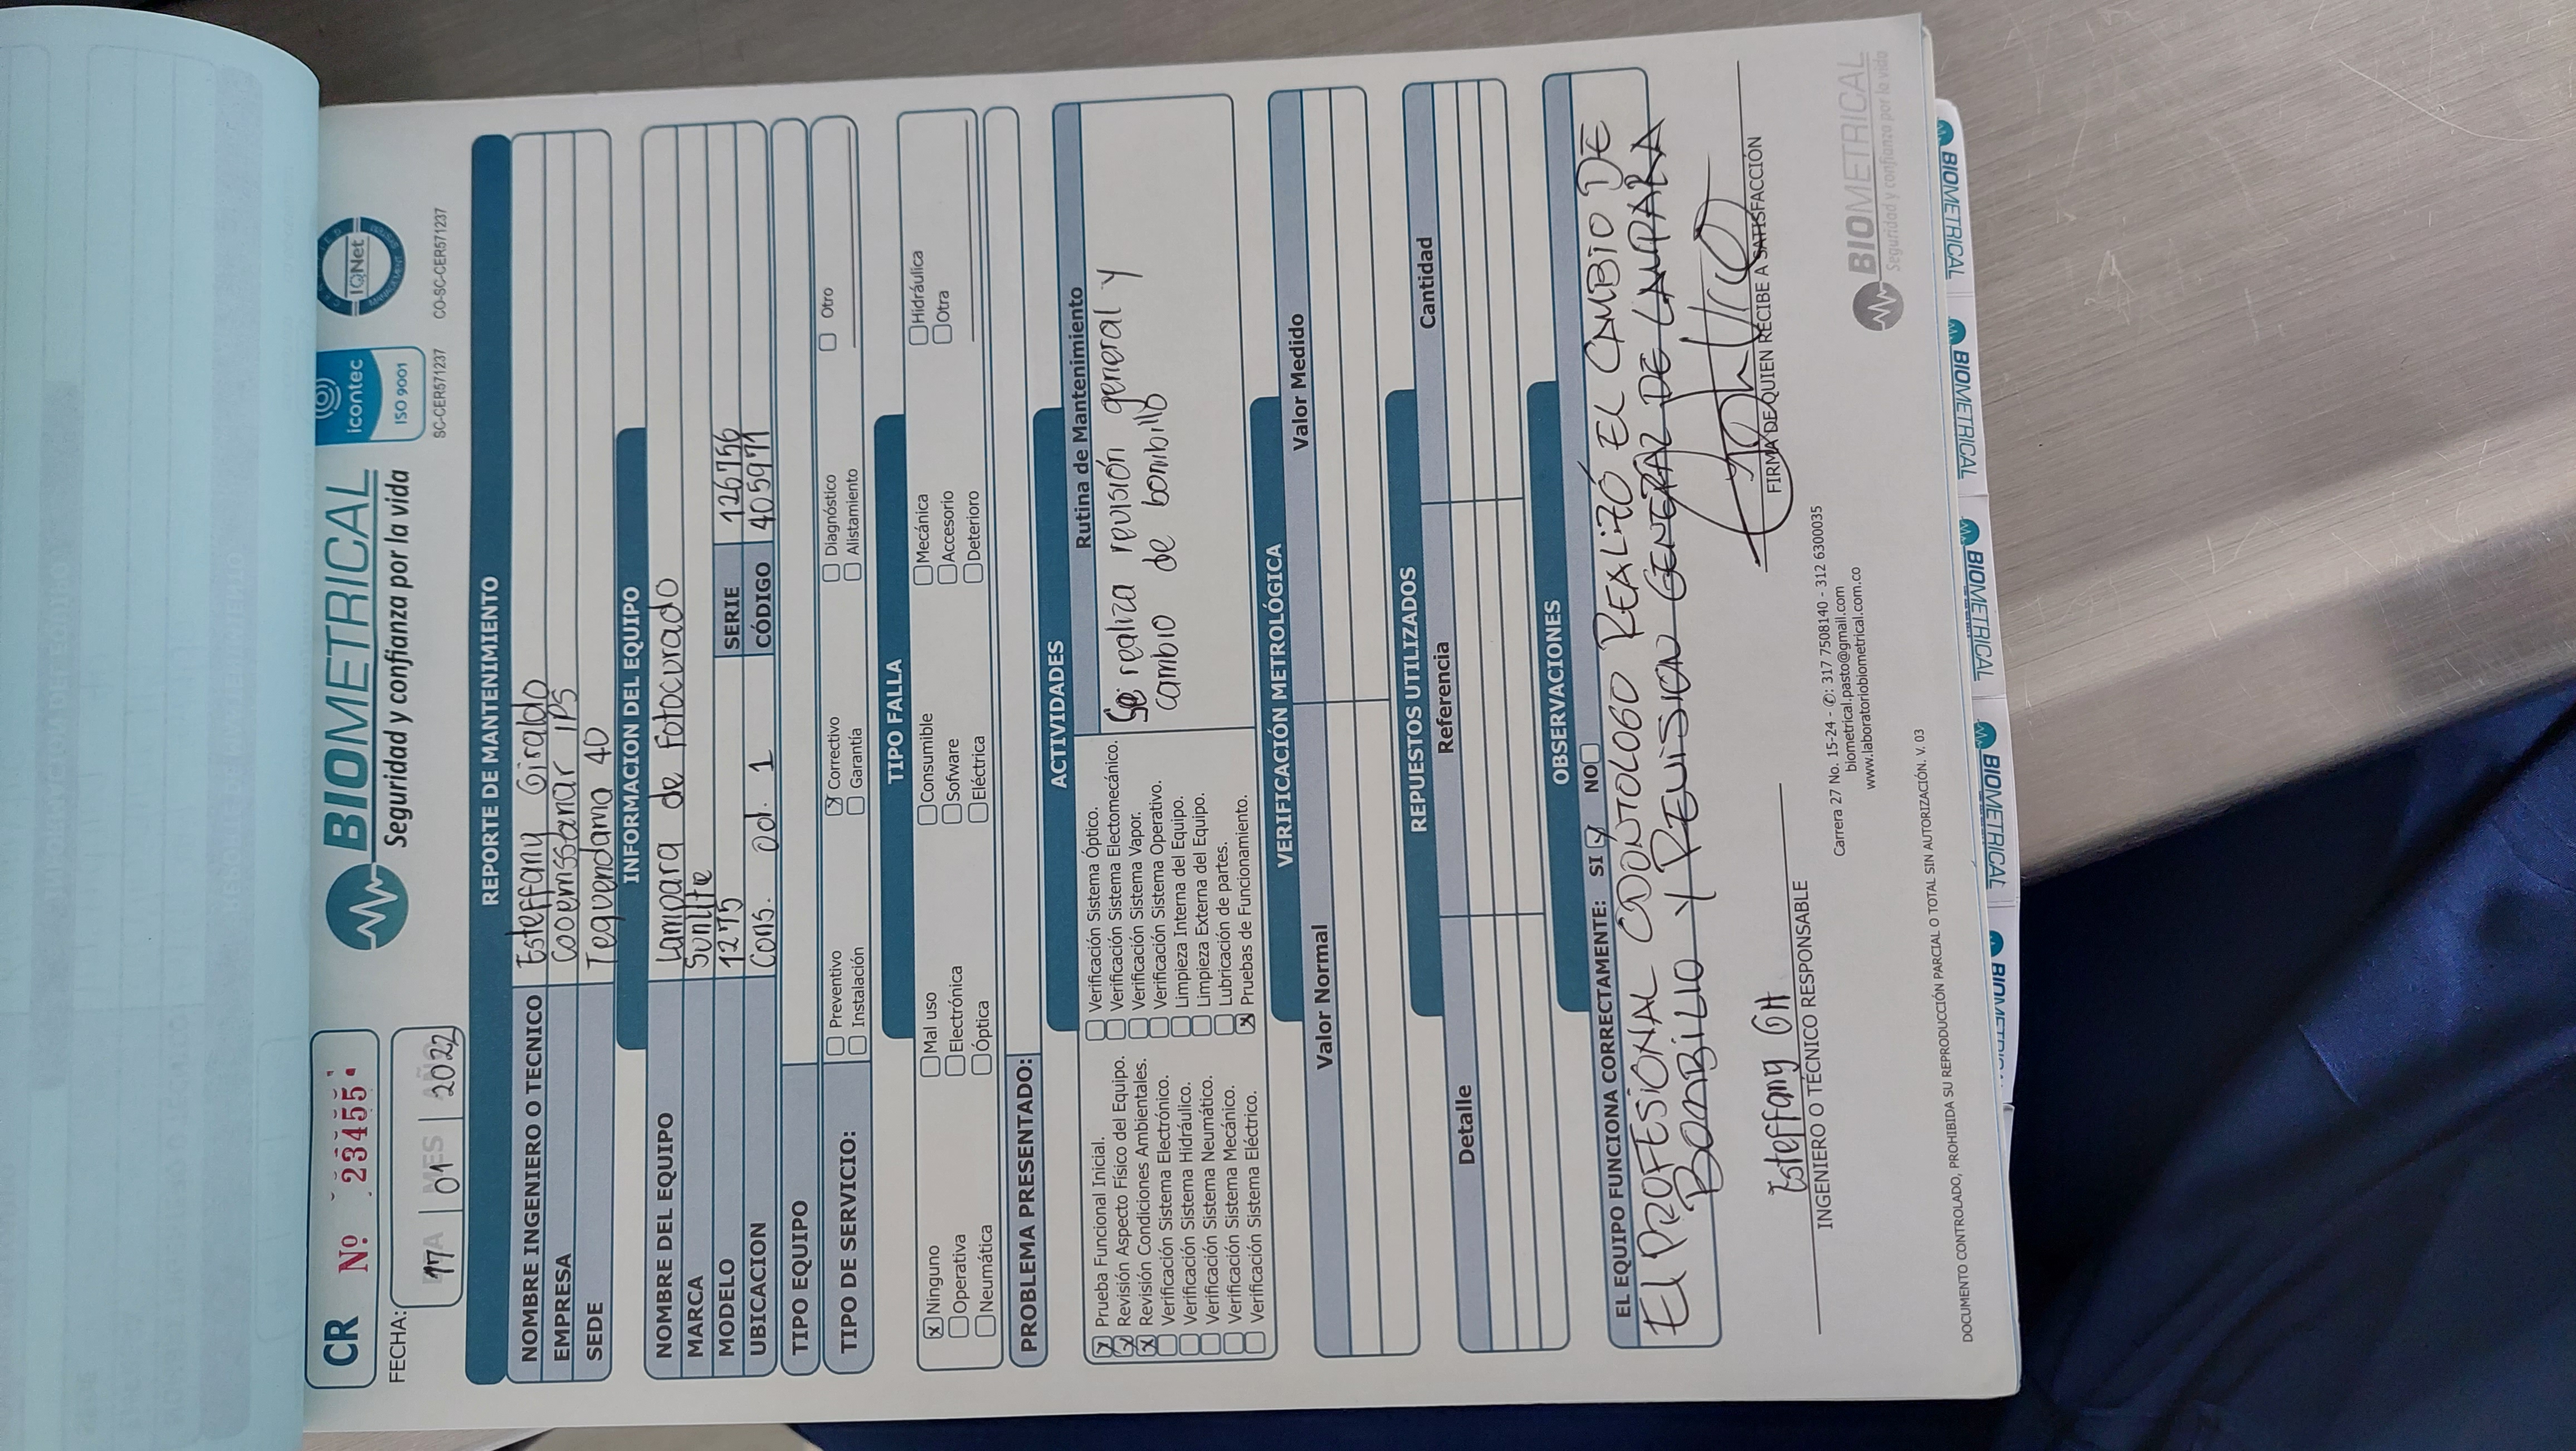 CR Nº 23455
BIOMETRICAL
Seguridad y confianza por la vida
icontec
ISO 9001
SC-CER571237
IQNet
CO-SC-CER571237
FECHA: 17 01 2022
REPORTE DE MANTENIMIENTO
NOMBRE INGENIERO O TECNICO Esteffany Giraldo
EMPRESA Cooemssanar IPS
SEDE Tequendama 40
INFORMACION DEL EQUIPO
NOMBRE DEL EQUIPO Lampara de Fotocurado
MARCA Sunlite
MODELO 1275 SERIE 126756
UBICACION Cons. Od. 1 CÓDIGO 405971
TIPO EQUIPO
TIPO DE SERVICIO:
Preventivo x Correctivo Diagnóstico Otro
Instalación Garantía Alistamiento
TIPO FALLA
x Ninguno Mal uso Consumible Mecánica Hidráulica
Operativa Electrónica Sofware Accesorio Otra
Neumática Óptica Eléctrica Deterioro
PROBLEMA PRESENTADO:
ACTIVIDADES
x Prueba Funcional Inicial.
x Revisión Aspecto Físico del Equipo.
x Revisión Condiciones Ambientales.
Verificación Sistema Electrónico.
Verificación Sistema Hidráulico.
Verificación Sistema Neumático.
Verificación Sistema Mecánico.
Verificación Sistema Eléctrico.
Verificación Sistema Óptico.
Verificación Sistema Electomecánico.
Verificación Sistema Vapor.
Verificación Sistema Operativo.
Limpieza Interna del Equipo.
Limpieza Externa del Equipo.
Lubricación de partes.
x Pruebas de Funcionamiento.
Rutina de Mantenimiento
Se realiza revisión general y
cambio de bombillo
VERIFICACIÓN METROLÓGICA
Valor Normal Valor Medido
REPUESTOS UTILIZADOS
Detalle Referencia Cantidad
OBSERVACIONES
EL EQUIPO FUNCIONA CORRECTAMENTE: SI x NO
El PROFESIONAL ODONTOLOGO REALIZÓ EL CAMBIO DE
BOMBILLO Y REVISION GENERAL DE LAMPARA
Esteffany GH
INGENIERO O TÉCNICO RESPONSABLE
FIRMA DE QUIEN RECIBE A SATISFACCIÓN
Carrera 27 No. 15-24 - ✆: 317 7508140 - 312 6300035
biometrical.pasto@gmail.com
www.laboratoriobiometrical.com.co
BIOMETRICAL
Seguridad y confianza por la vida
DOCUMENTO CONTROLADO, PROHIBIDA SU REPRODUCCIÓN PARCIAL O TOTAL SIN AUTORIZACIÓN. V. 03
BIOMETRICAL BIOMETRICAL BIOMETRICAL BIOMETRICAL BIOMETRICAL